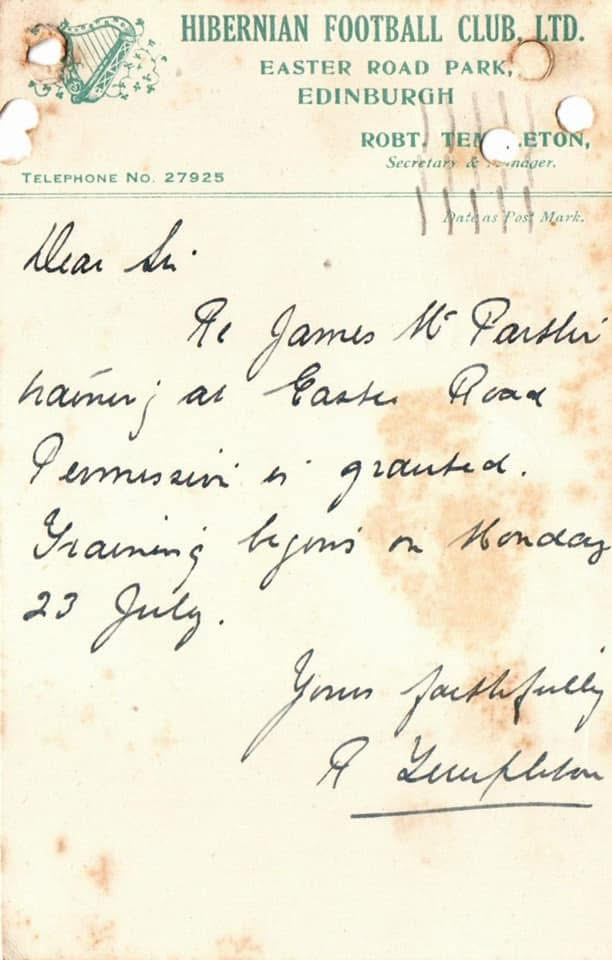 HIBERNIAN FOOTBALL CLUB, LTD.
EASTER ROAD PARK,
EDINBURGH
ROBT. TEM LETON,
Secretary & nager.
TELEPHONE NO. 27925
Date as Post Mark.
Dear Sir
Re James Mc
training at Easter Road
Permission is granted.
Training begins on Monday
23 July.
Yours faithfully
R Templeton